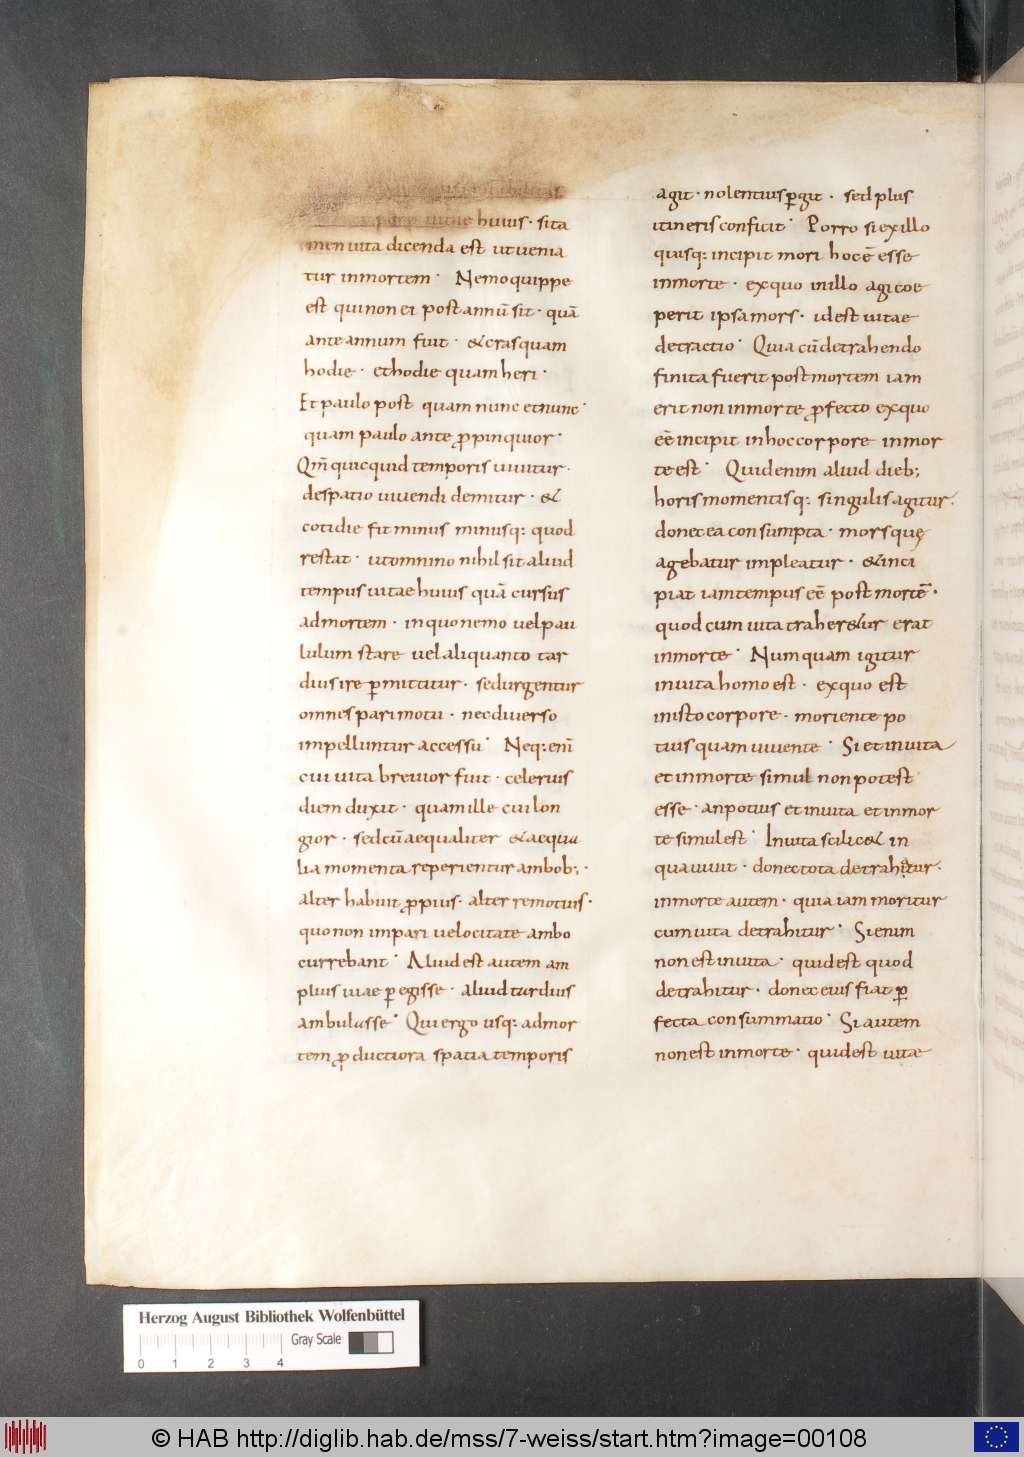 huius · sita
men uita dicenda est utuenia
tur inmortem · Nemo quippe
est qui non ei post annū sit · quā
ante annum fuit · & cras quam
hodie · et hodie quam heri ·
Et paulo post quam nunc et nunc ·
quam paulo ante ꝓpinquior ·
Qm̄ quicquid temporis uiuitur ·
despatio uiuendi demitur · &
cotidie fit minus minusq: quod
restat · utomnino nihil sit aliud
tempus uitae huius quā cursus
admortem · in quo nemo uel pau
lulum stare uel aliquanto tar
dius ire ꝑmittitur · sed urgentur
omnes pari motu · nec diuerso
impelluntur accessu · Neq: enī
cui uita breuior fuit · celerius
diem duxit · quam ille cui lon
gior · sed cū aequaliter & aequa
lia momenta reperientur ambob; ·
alter habuit ꝓpius · alter remotius ·
quo non impari uelocitate ambo
currebant · Aliud est autem am
plius uiae ꝑegisse · aliud tardius
ambulasse · Qui ergo usq: admor
tem ꝓductiora spatia temporis
agit · non lentius ꝑgit · sed plus
itineris conficit · Porro si exillo
quisq: incipit mori hoc ē esse
inmorte · exquo inillo agi coe
perit ipsa mors · idest uitae
detractio · Quia cū detrahendo
finita fuerit post mortem iam
erit non inmorte ꝓfecto exquo
eē incipit inhoc corpore inmor
te est · Quid enim aliud dieb;
horis momentisq: singulis agitur ·
donec ea consumpta · mors quę
agebatur impleatur · & inci
piat iam tempus eē post mortē ·
quod cum uita traher&ur erat
inmorte · Numquam igitur
inuita homo est · exquo est
inisto corpore · moriente po
tius quam uiuente · Si et inuita
et inmorte simul non potest
esse · an potius et inuita et inmor
te simul est · Inuita scilic& in
qua uiuit · donec tota detrahitur ·
inmorte autem · quia iam moritur
cum uita detrahitur · Si enim
non est inuita · quid est quod
detrahitur · donec eius fiat ꝑ
fecta consummatio · Si autem
non est inmorte · quid est uitae
Herzog August Bibliothek Wolfenbüttel
Gray Scale
0 1 2 3 4
© HAB http://diglib.hab.de/mss/7-weiss/start.htm?image=00108